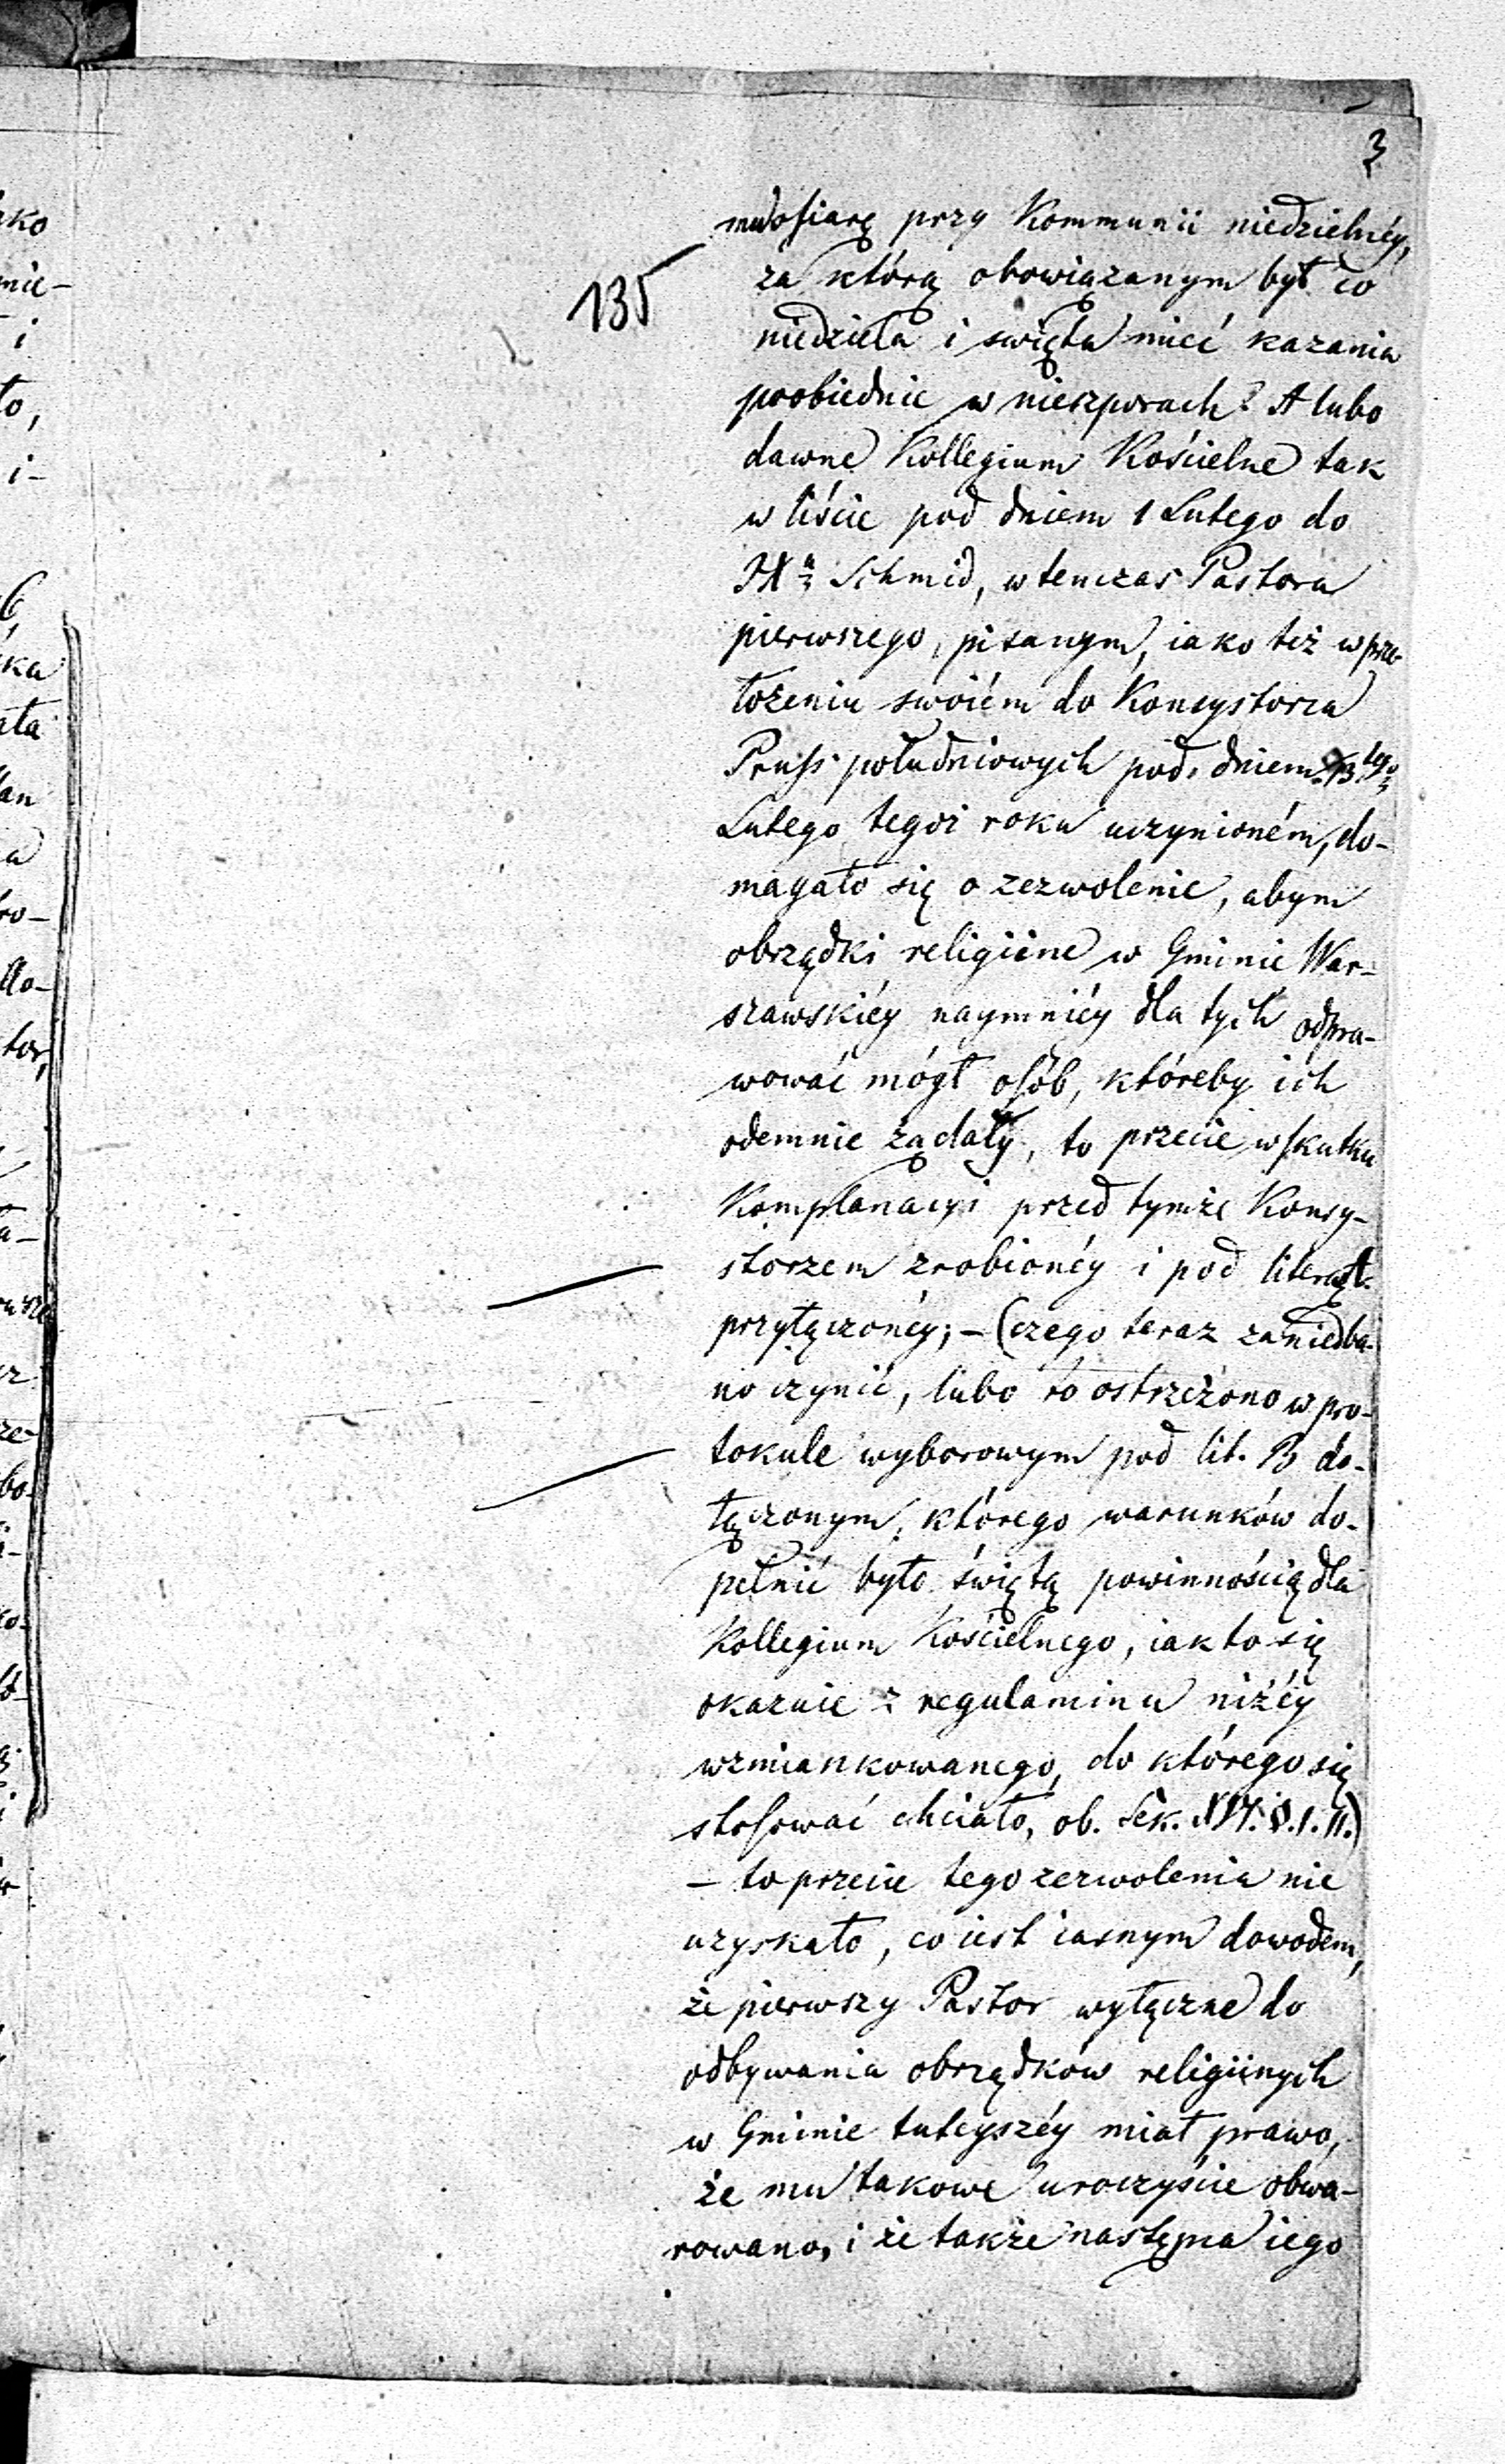 3
135
mu ofiarę przy Kommunii niedzielnéy,
za którą obowiązanym był co
niedziela i święta mieć kazania
poobiednie w nieszporach? A lubo
dawne Kollegium Kościelne tak
w liście pod dniem 1 Lutego do
Schmid, wtenczas Pastora
pierwszego, pisanym, iako też w prze-
łożeniu swoiém do Konsystorza
Pruss południowych pod dniem
Lutego tegoż roku uczynioném, do-
magało się o zezwolenie, abym
obrządki religiine w Gminie War-
szawskiéy naymniéy dla tych odpra-
wować mógł osób, któreby ich
odemnie żądały, to przecie w skutku
Komplanacyi przed tymże Konsy-
storzem zrobionéy i pod literą
przyłączonéy; – (czego teraz zaniedba-
no czynić, lubo to ostrzeżono w pro-
tokule wyborowym pod lit. B do-
łączonym, którego warunków do-
pełnić było świętą powinnością dla
Kollegium Kościelnego, iak to się
okazuie z regulaminu niżéy
wzmiankowanego, do którego się
stosować chciało, ob. Sek. XVI. §. I. II.)
– to przecie tego zezwolenia nie
uzyskało, co iest iasnym dowodem,
że pierwszy Pastor wyłączne do
odbywania obrządków religiinych
w Gminie tuteyszéy miał prawo,
że mu takowe uroczyście obwa-
rowano, i że także następca iego